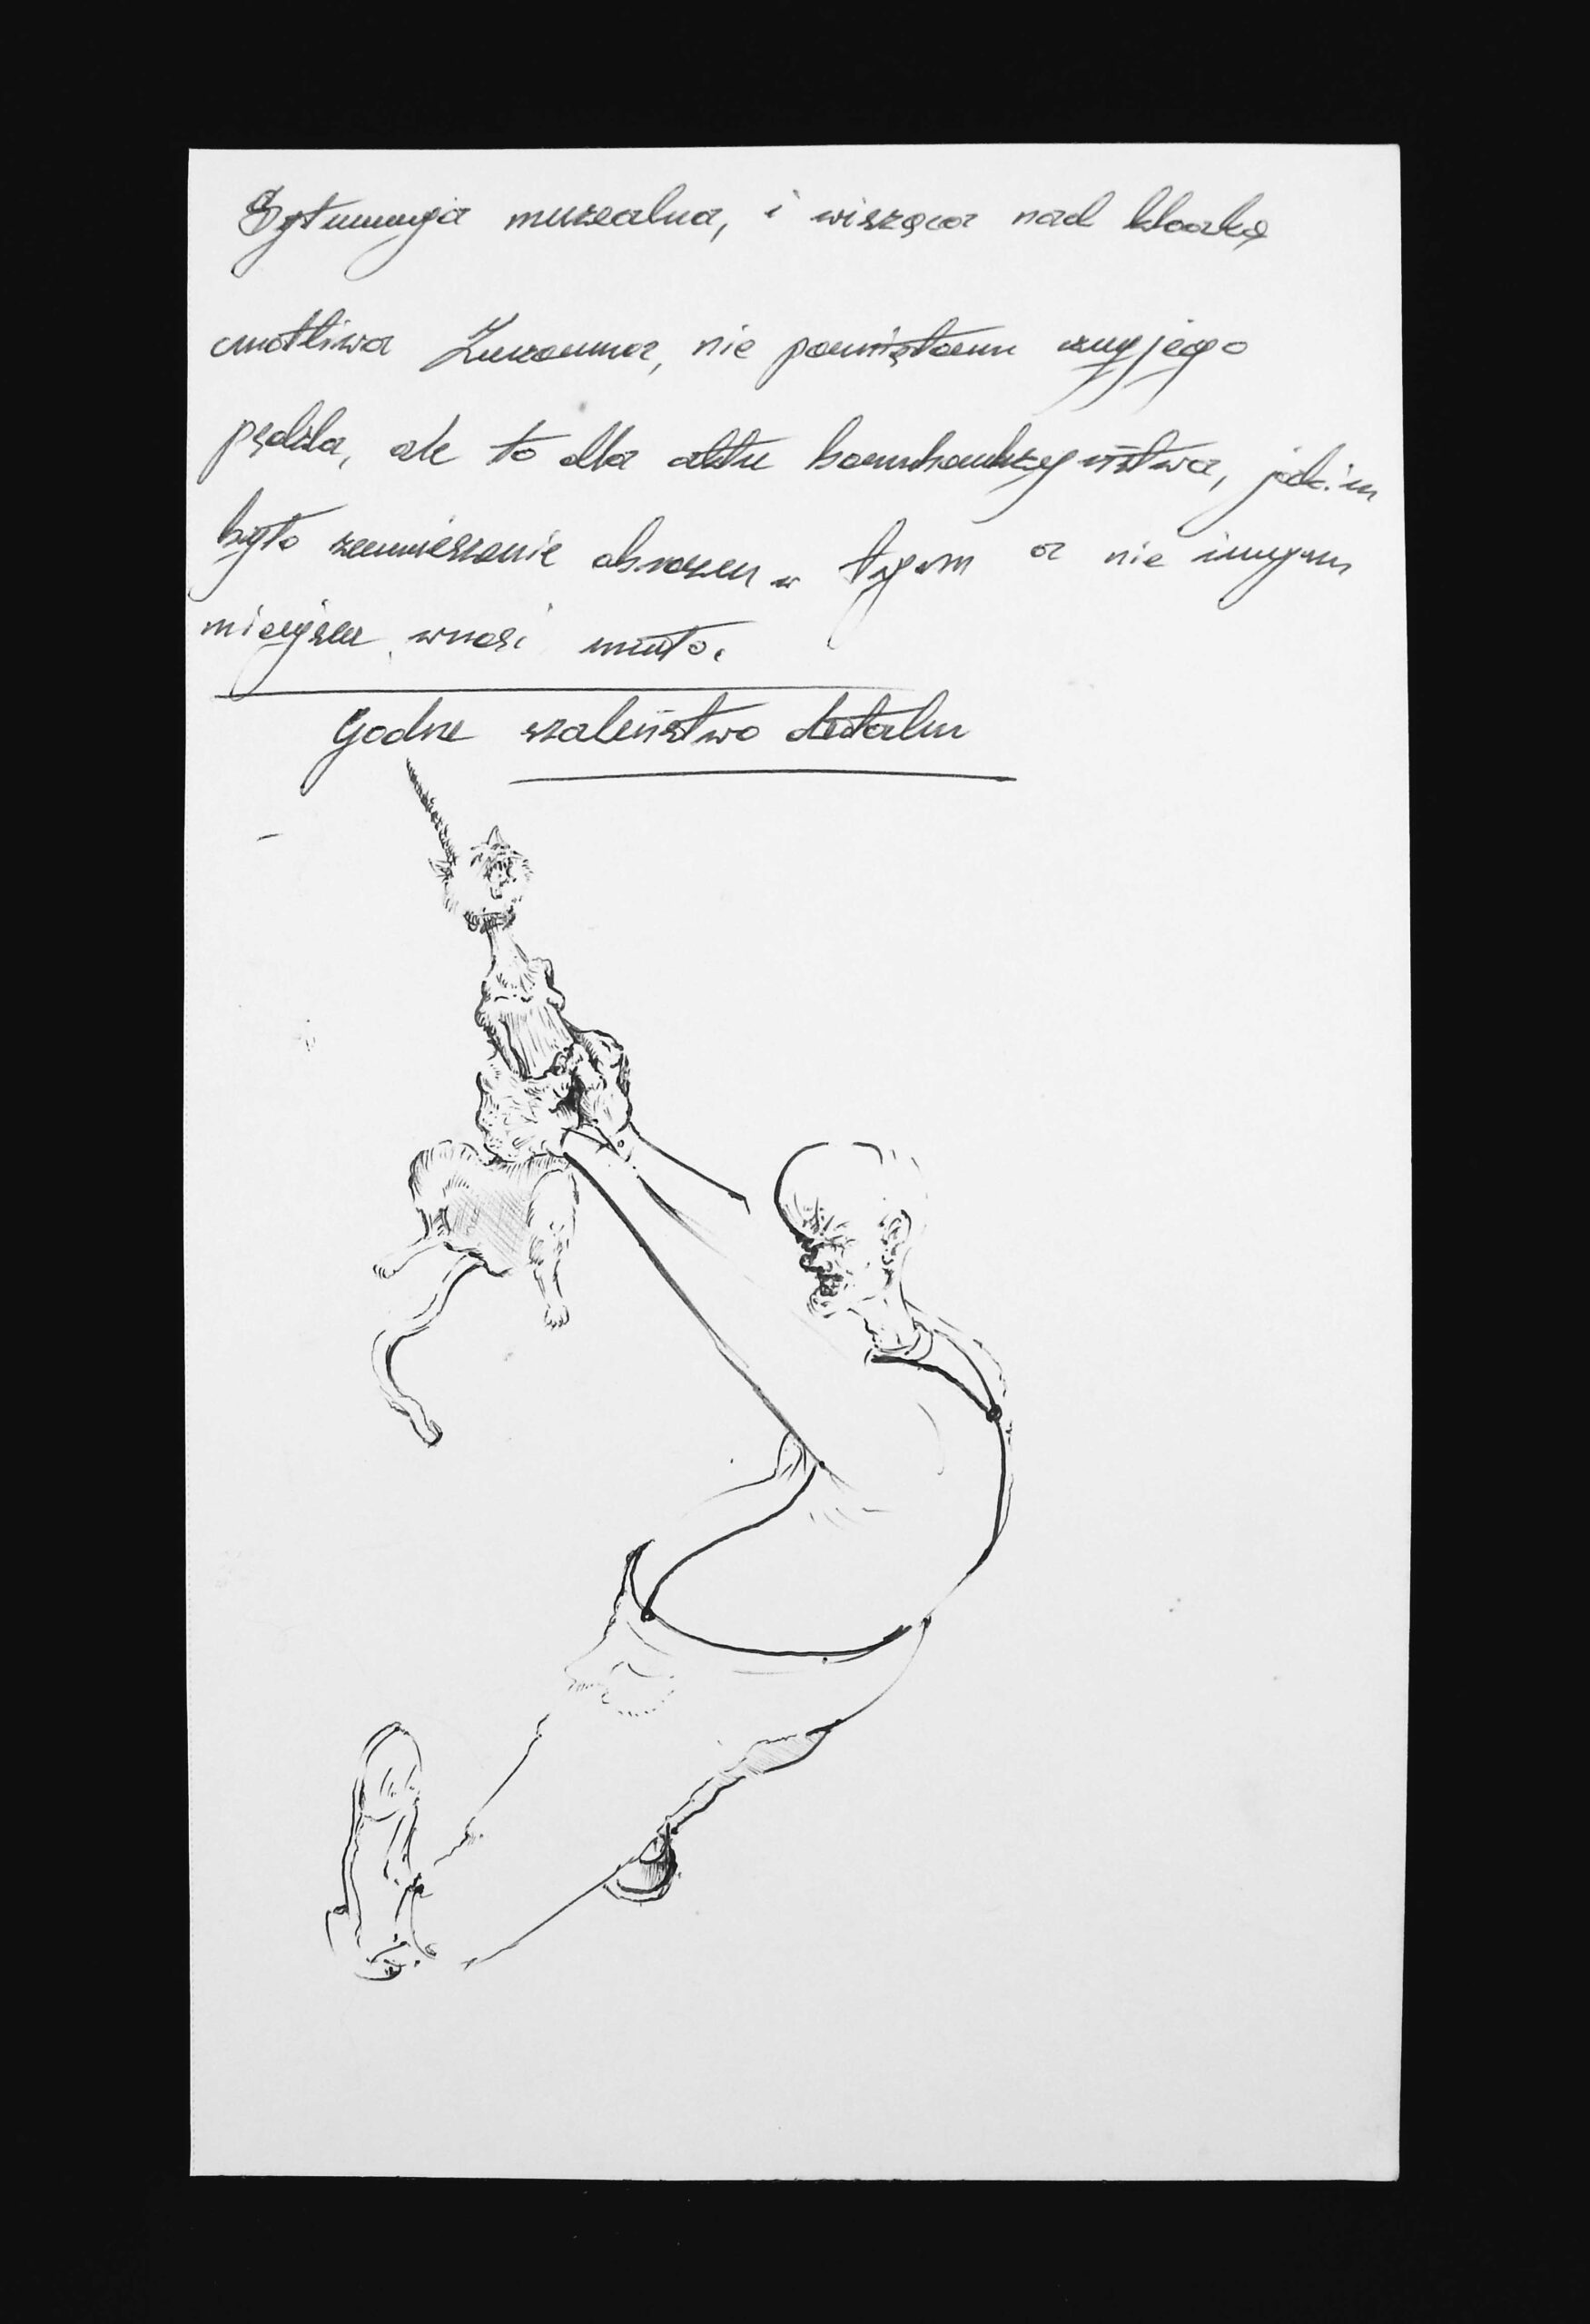 Sytuacja muzealna, i wisząca nad kloaką
cnotliwa Zuzanna, nie pamiętam czyjego
pędzla, ale to dla aktu barbarzyństwa, jakim
było zawieszenie obrazu w tym a nie innym
miejscu wnosi mało.
Godne szaleństwo detalu